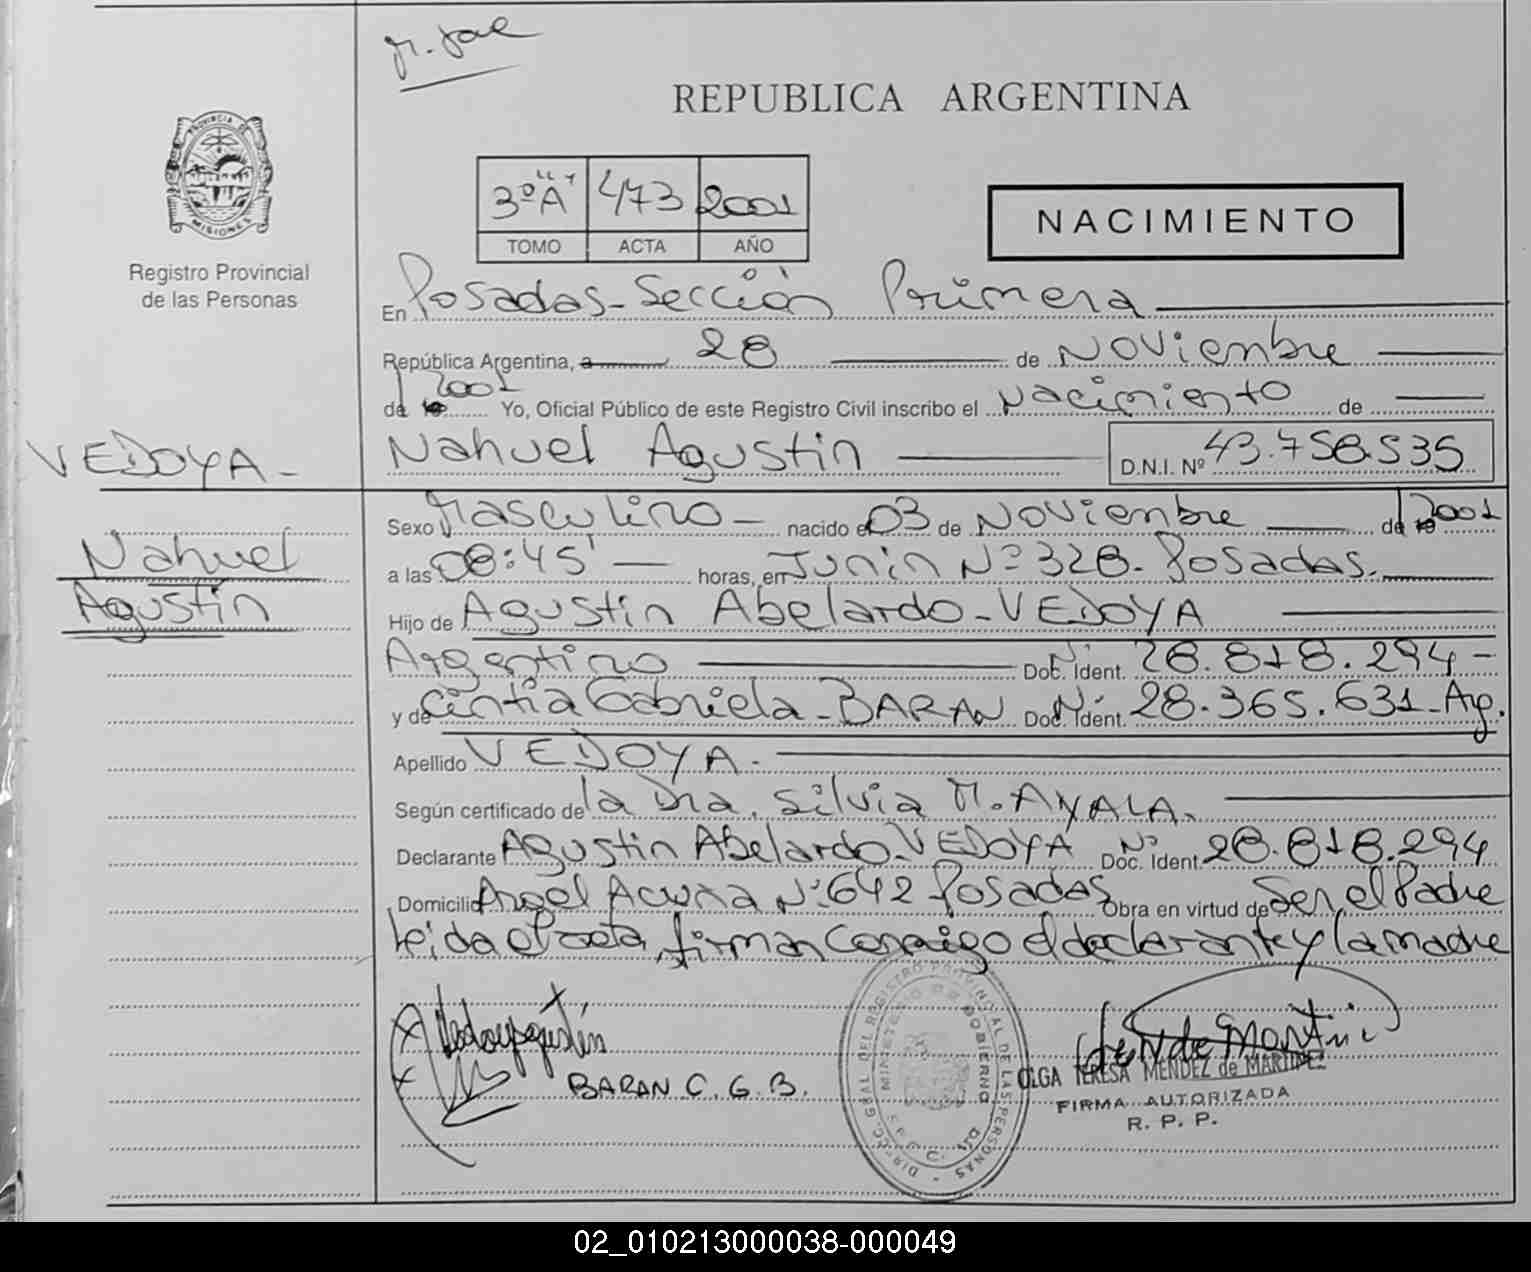 REPUBLICA ARGENTINA
PROVINCIA DE
MISIONES
Registro Provincial
de las Personas
3º "A" 473 2001
TOMO ACTA AÑO
NACIMIENTO
En Posadas - Sección Primera
República Argentina, a 28 de Noviembre
del 2001 Yo, Oficial Público de este Registro Civil inscribo el Nacimiento de
VEDOYA - Nahuel Agustin D.N.I. Nº 43.758.535
Sexo Masculino - nacido el 03 de Noviembre del 2001
Nahuel a las 08:45' horas, en Junin Nº 328 - Posadas.
Agustin Hijo de Agustin Abelardo - VEDOYA
Argentino Doc. Ident. Nº 28.818.294 -
y de Cintia Gabriela - BARAN Doc. Ident. Nº 28.365.631 - Arg.
Apellido VEDOYA.
Según certificado de la Dra. Silvia M. AYALA.
Declarante Agustin Abelardo - VEDOYA Doc. Ident. Nº 28.818.294
Domicilio Angel Acuña Nº 642 Posadas Obra en virtud de Ser el Padre
leida el acta, firman Conmigo el declarante y la madre
Vedoya Agustín
BARAN C. G. B.
DIRECC. GRAL DEL REGISTRO PROVINCIAL DE LAS PERSONAS
MINISTERIO DE GOBIERNO
OLGA TERESA MENDEZ de MARTINEZ
FIRMA AUTORIZADA
R. P. P.
02_010213000038-000049